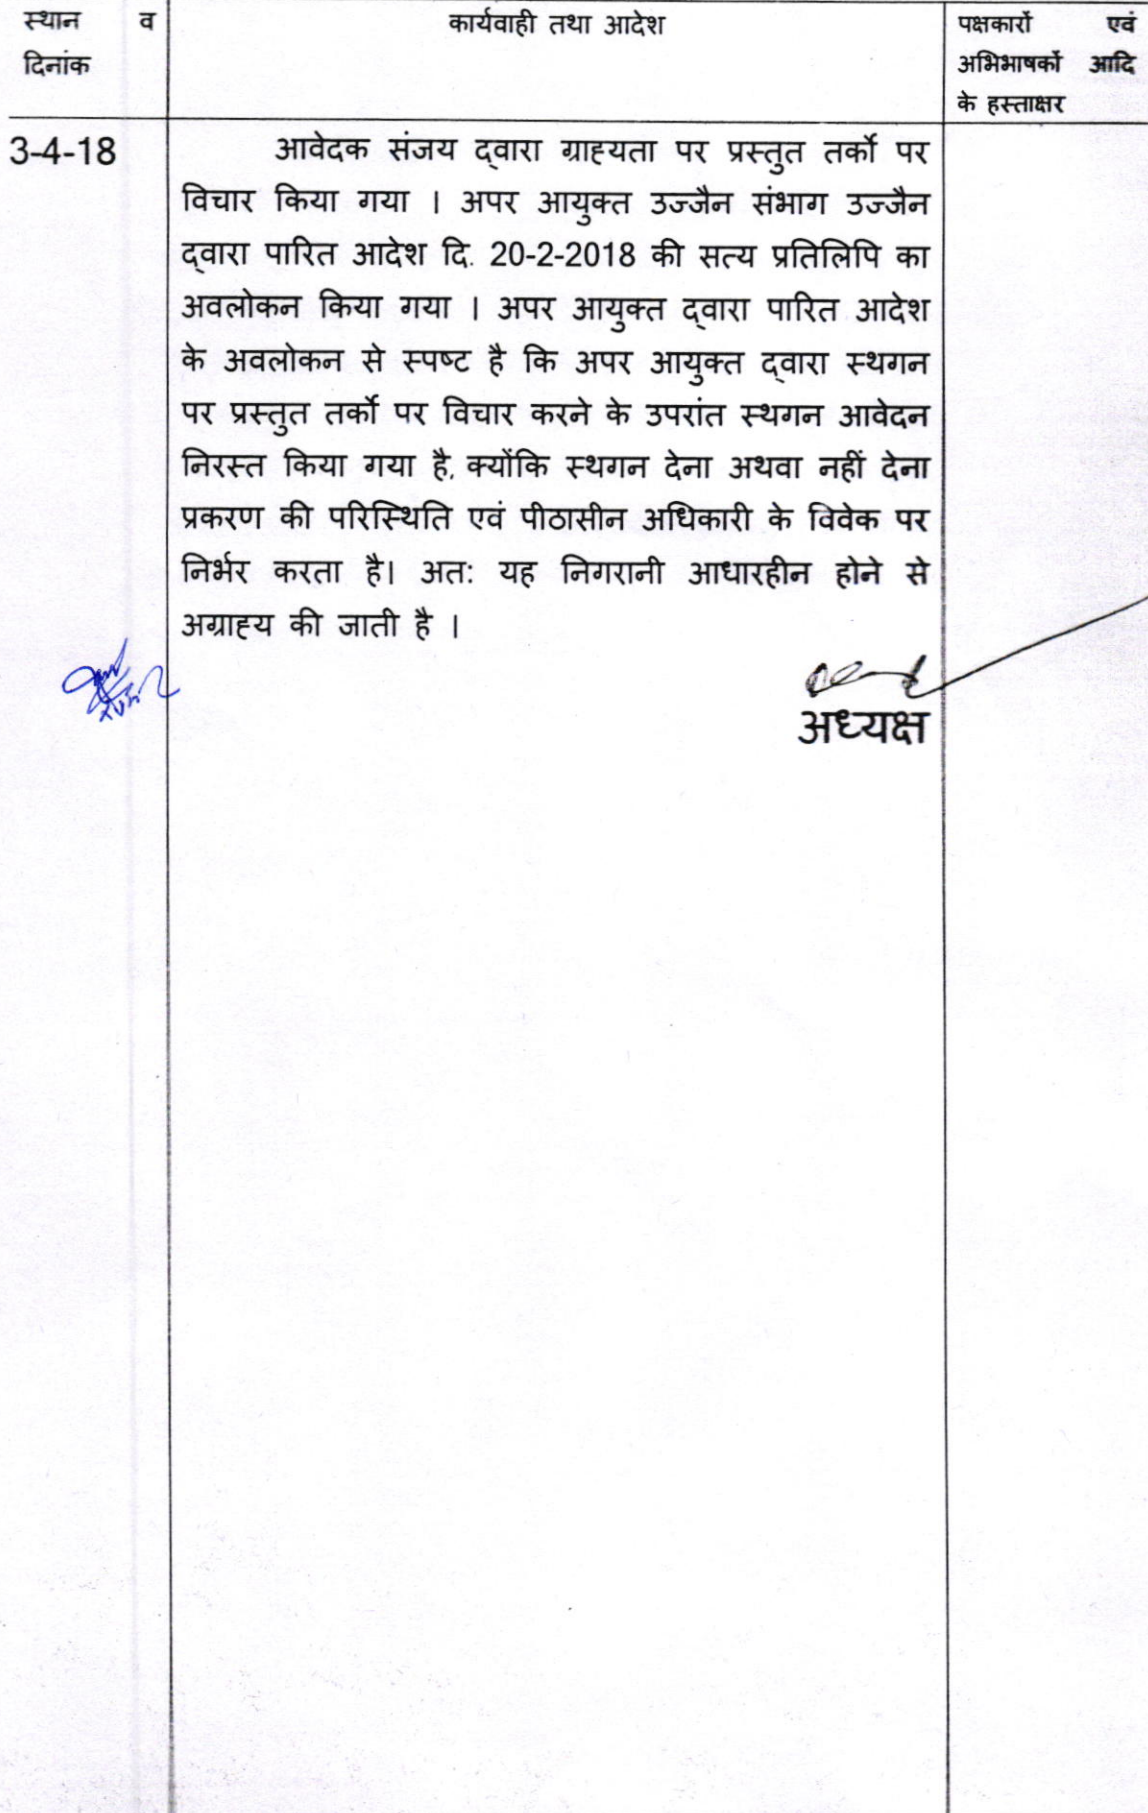 स्थान व
दिनांक
कार्यवाही तथा आदेश
पक्षकारों एवं
अभिभाषकों आदि
के हस्ताक्षर
3-4-18
आवेदक संजय द्वारा ग्राह्यता पर प्रस्तुत तर्को पर
विचार किया गया । अपर आयुक्त उज्जैन संभाग उज्जैन
द्वारा पारित आदेश दि. 20-2-2018 की सत्य प्रतिलिपि का
अवलोकन किया गया । अपर आयुक्त द्वारा पारित आदेश
के अवलोकन से स्पष्ट है कि अपर आयुक्त द्वारा स्थगन
पर प्रस्तुत तर्को पर विचार करने के उपरांत स्थगन आवेदन
निरस्त किया गया है, क्योंकि स्थगन देना अथवा नहीं देना
प्रकरण की परिस्थिति एवं पीठासीन अधिकारी के विवेक पर
निर्भर करता है। अत: यह निगरानी आधारहीन होने से
अग्राह्य की जाती है ।
अध्यक्ष